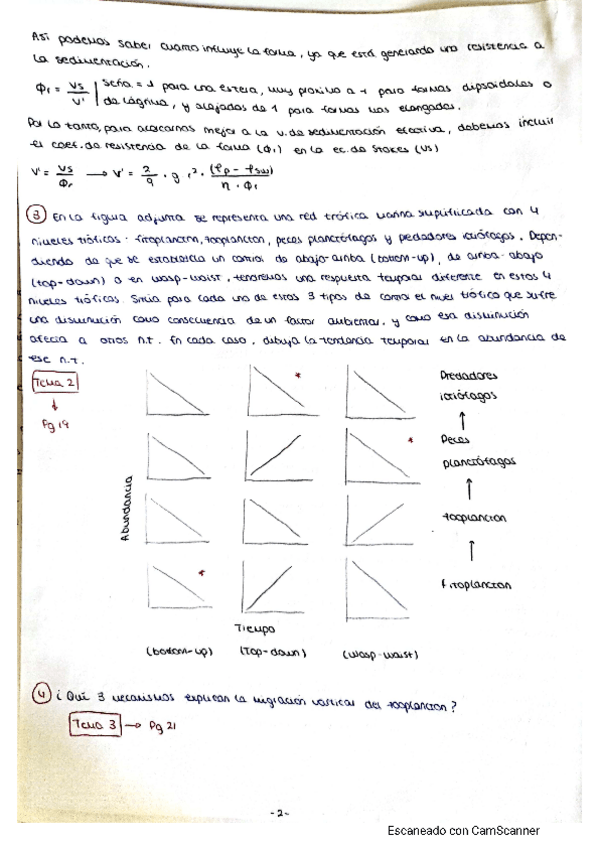 Así podemos saber cuanto influye la forma, ya que está generando una resistencia a
la sedimentación.
Φr = Vs / V' | Sería = 1 para una esfera, muy próximo a 1 para formas elipsoidales o
de lágrima, y alejados de 1 para formas más elongadas.
Por lo tanto, para acercarnos mejor a la v. de sedimentación efectiva, debemos incluir
el coef. de resistencia de la forma (Φr) en la ec. de Stokes (Vs)
V' = Vs / Φr → V' = 2/9 · g r² · (ρp - ρsw) / η · Φr
③ En la figura adjunta se representa una red trófica marina simplificada con 4
niveles tróficos: fitoplancton, zooplancton, peces planctófagos y predadores ictiófagos. Depen-
diendo de que se establezca un control de abajo-arriba (bottom-up), de arriba-abajo
(top-down) o en wasp-waist, tendremos una respuesta temporal diferente en estos 4
niveles tróficos. Sitúa para cada uno de estos 3 tipos de control el nivel trófico que sufre
una disminución como consecuencia de un factor ambiental, y como esa disminución
afecta a otros n.t. En cada caso, dibuja la tendencia temporal en la abundancia de
ese n.t.
Tema 2
↓
Pg 19
Abundancia
*
*
*
Predadores
ictiófagos
↑
Peces
planctófagos
↑
zooplancton
↑
fitoplancton
Tiempo
(bottom-up) (Top-down) (wasp-waist)
④ ¿Qué 3 mecanismos explican la migración vertical del zooplancton?
Tema 3 → Pg 21
-2-
Escaneado con CamScanner